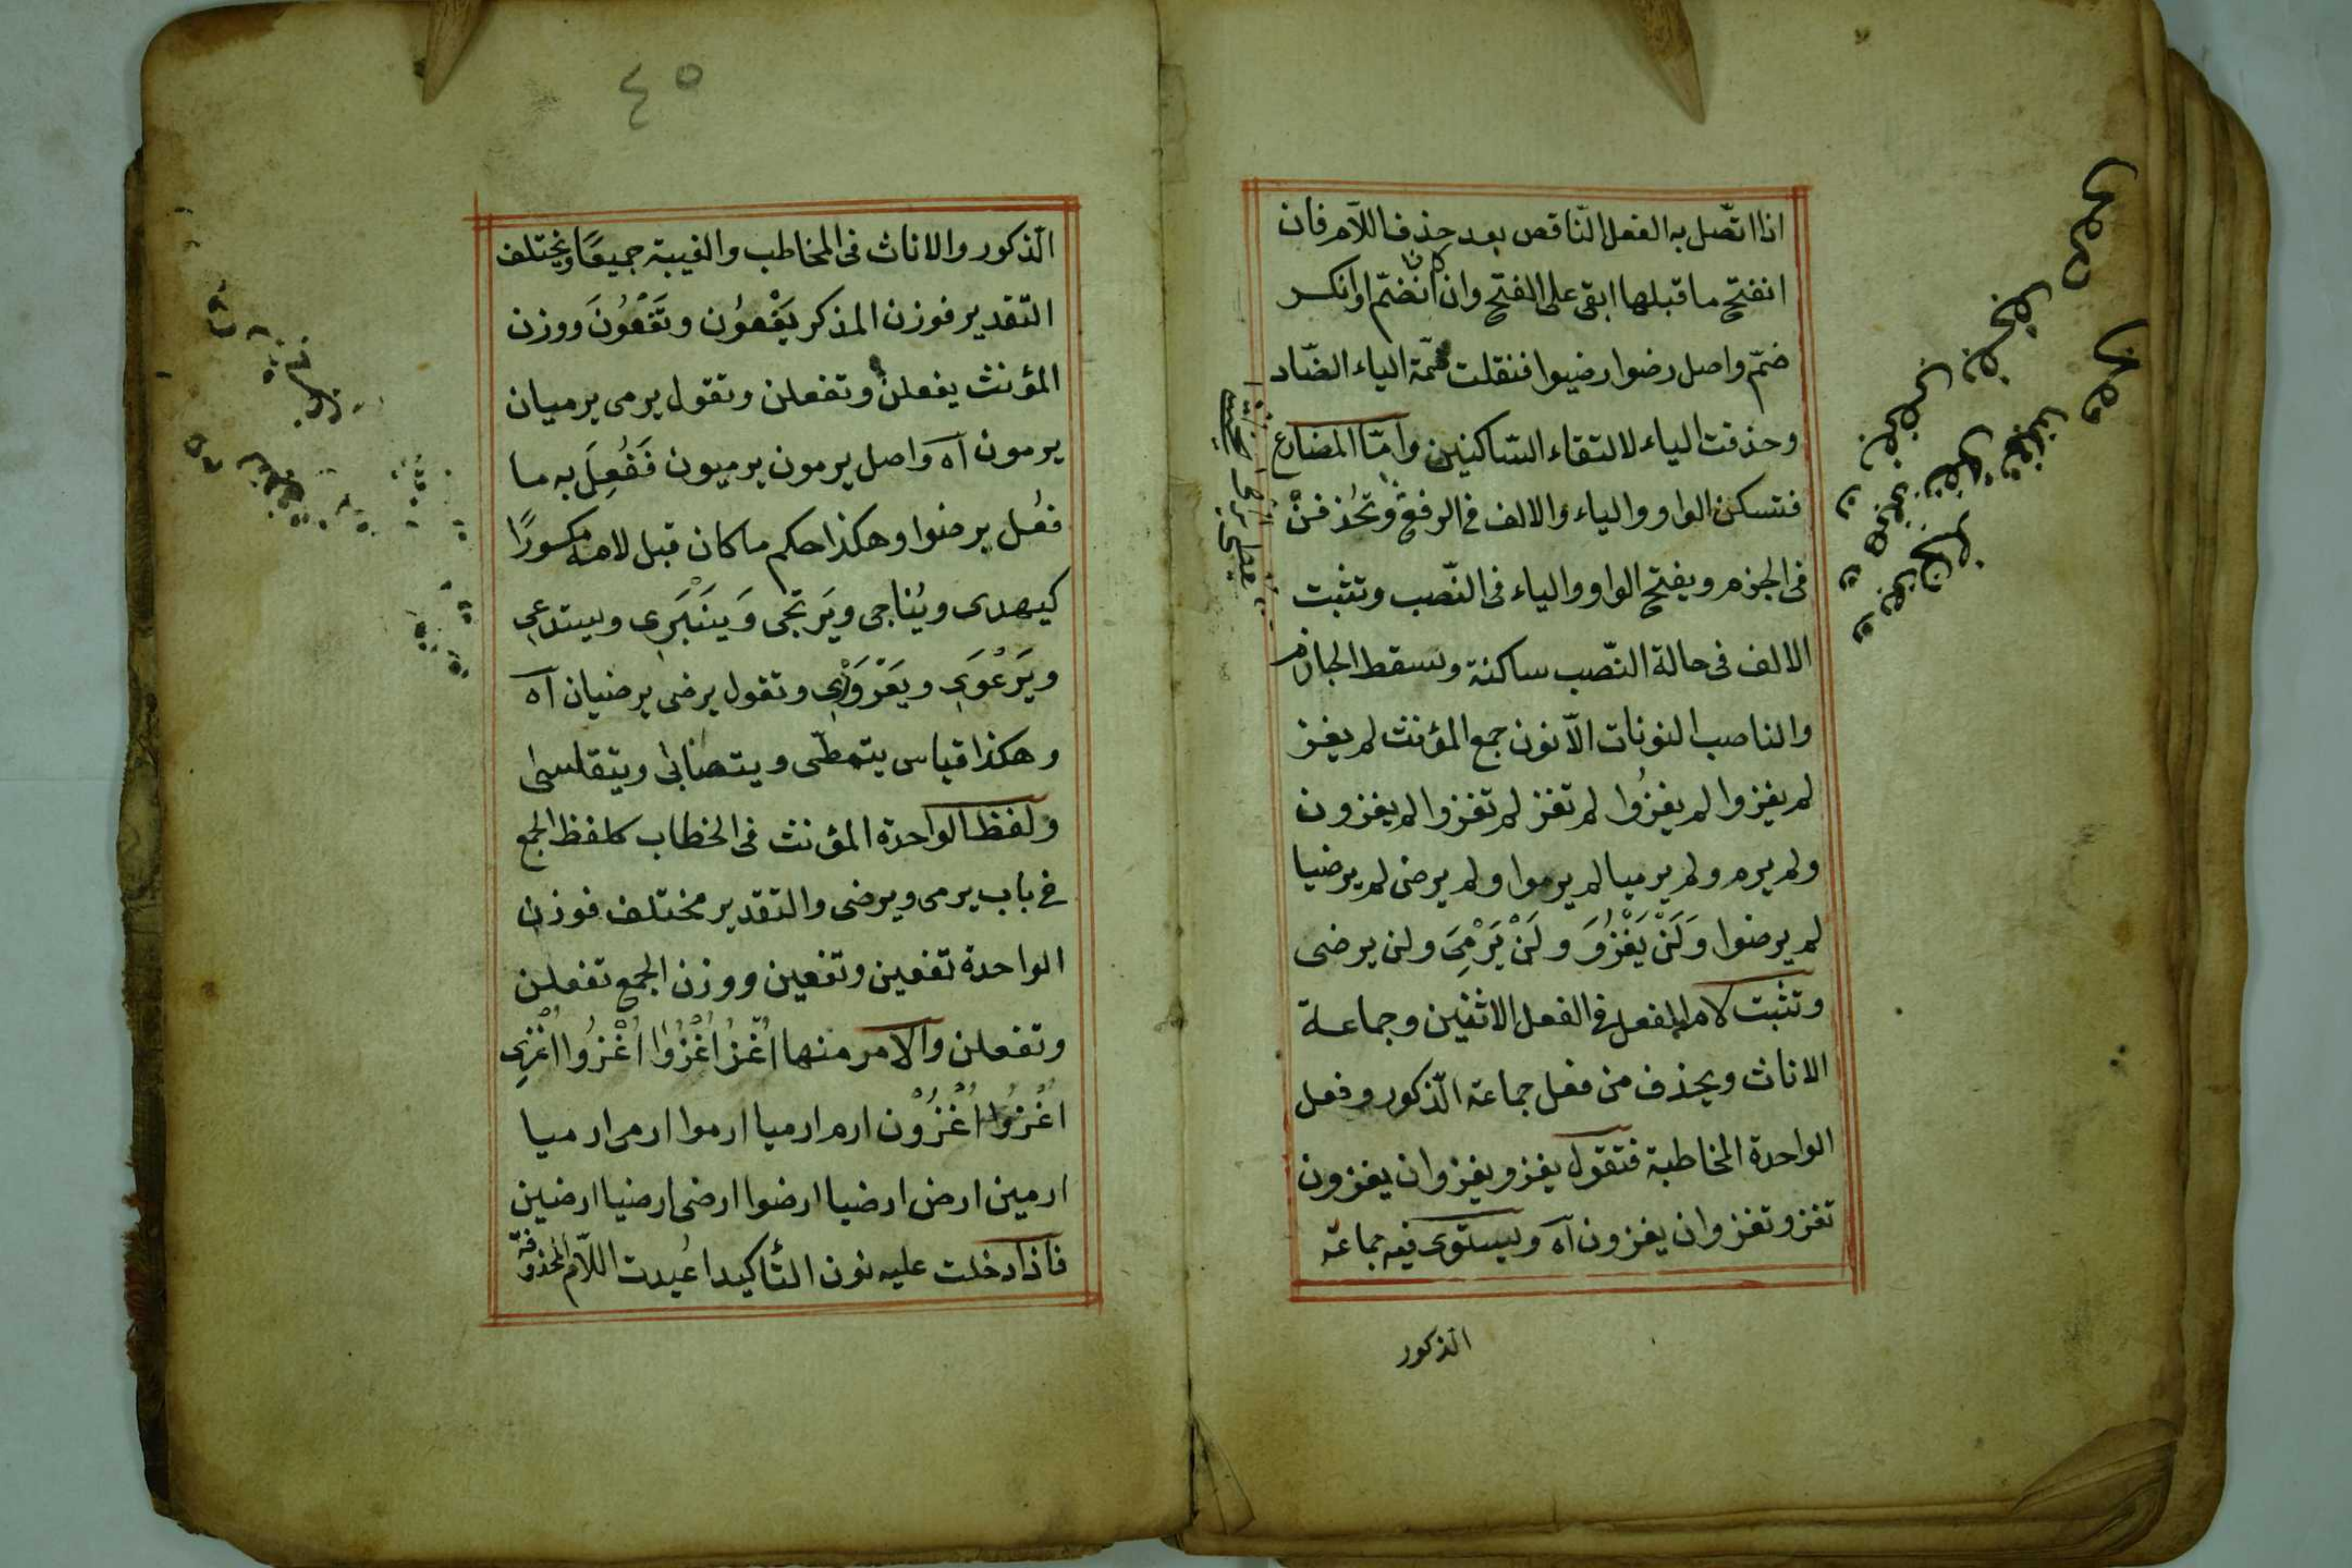 اذا اتّصل به الفعل النّاقص بعد حذف اللّام فان
انفتح ما قبلها ابقى على الفتح وان كان انضمّ او انكسر
ضمّ واصل رضوا رضيوا فنقلت ضمّة الياء الضّاد
وحذفت الياء لالتقاء السّاكنين وامّا المضارع
فتسكن الواو والياء والالف فى الرفع وتحُذفنْ
فى الجزم ويفتح الواو والياء فى النّصب وتثبت
الالف فى حالة النّصب ساكنة ويسقط الجازم
والناصب النونات الّا نون جمع المؤنث لم يغز
لم يغزوا لم يغزُوا لم تغز لم تغزوا لم يغزون
ولم يرم ولم يرميا لم يرموا ولم يرضى لم يرضيا
لم يرضوا وَلَنْ يَغْزُوَ ولَنْ يَرْمِىَ ولن يرضى
وتثبت لام الفعل فى الفعل الاثنين وجماعة
الاناث ويحذف من فعل جماعة الذّكور وفعل
الواحدة المخاطبة فتقول يغزو يغزوان يغزون
تغزو تغزوان يغزون آه ويستوى فيه جماعة
الذكور
٤٥
الذّكور والاناث فى المخاطب والغيبة جميعًا ويختلف
التقدير فوزن المذكر يَفْعوُن وتَفْعُونَ ووزن
المؤنث يفعلن وتفعلن وتقول يرمى يرميان
يرمون آه واصل يرمون يرميون فَفُعِلَ به ما
فعُل برضوا وهكذا حكم ما كان قبل لامه مكسورًا
كيهدى ويُناجى ويَرتجى وَيَنْبَرِى ويستدعى
ويَرْعَوِى ويَعْرَوْرِى وتقول يرضى يرضيان آه
وهكذا قياس يتمطّى ويتصابى ويتقلسى
ولفظ الواحدة المؤنث فى الخطاب كلفظ الجمع
فى باب يرمى ويرضى والتقدير مختلف فوزن
الواحدة تفعين وتفعين ووزن الجمع تفعلن
وتفعلن والامر منها اُغْزُ اُغْزُوَا اُغْزُوا اُغْزِى
اُغْزُوَا اُغْزُوْن ارم ارميا ارموا ارمى ارميا
ارمين ارض ارضيا ارضوا ارضى ارضيا ارضين
فاذا دخلت عليه نون التّأكيد اعُيدت اللّام المحذوفة